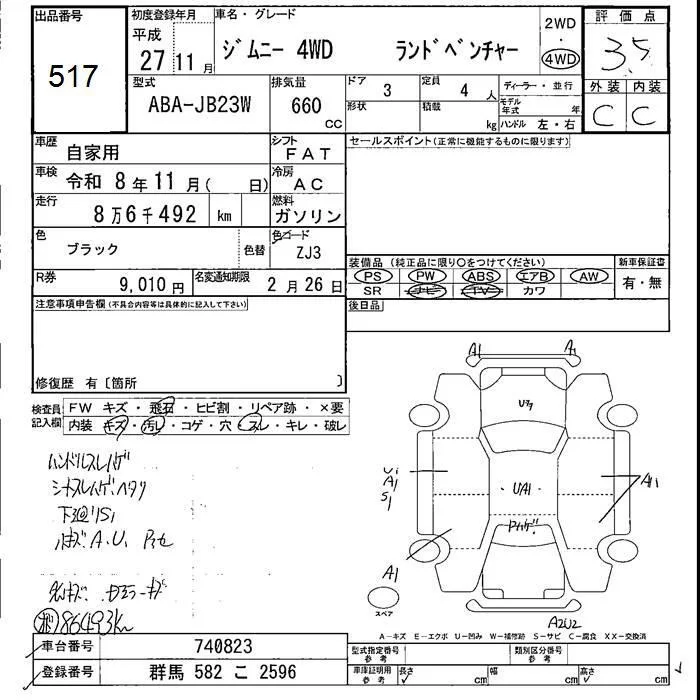 出品番号
517
初度登録年月
平成
27 11 月
車名・グレード
ジムニー 4WD ランドベンチャー
2WD
・
4WD
評価点
3.5
外装 内装
C C
型式
ABA-JB23W
排気量
660
CC
ドア 3
形状
定員 4 人
積載 kg
ディーラー・並行
モデル年式 年
ハンドル 左・右
車歴
自家用
シフト
FAT
セールスポイント(正常に機能するものに限ります)
車検
令和 8 年 11 月( 日)
冷房
AC
走行
8 万 6 千 492 km
燃料
ガソリン
色
ブラック
色替
色コード
ZJ3
装備品 (純正品に限り○をつけてください)
PS PW ABS エアB AW
SR ナビ TV カワ
新車保証書
有・無
R券
9,010 円
名変通知期限
2 月 26 日
後日品
注意事項申告欄(不具合内容等は具体的に記入して下さい)
修復歴 有〔箇所 〕
検査員記入欄
FW キズ・飛石・ヒビ割・リペア跡・×要
内装 キズ・汚レ・コゲ・穴・スレ・キレ・破レ
ハンドルスレハゲ
シートスレハゲヘタリ
下廻りS1
86493km
A1 A1
U7
U1
A1
S1
UA1
A1
A1
A2U2
スペア
A-キズ E-エクボ U-凹み W-補修跡 S-サビ C-腐食 XX-交換済
車台番号
740823
登録番号
群馬 582 こ 2596
型式指定番号
参考
類別区分番号
参考
車庫証明用
参考
長さ cm 幅 cm 高さ cm